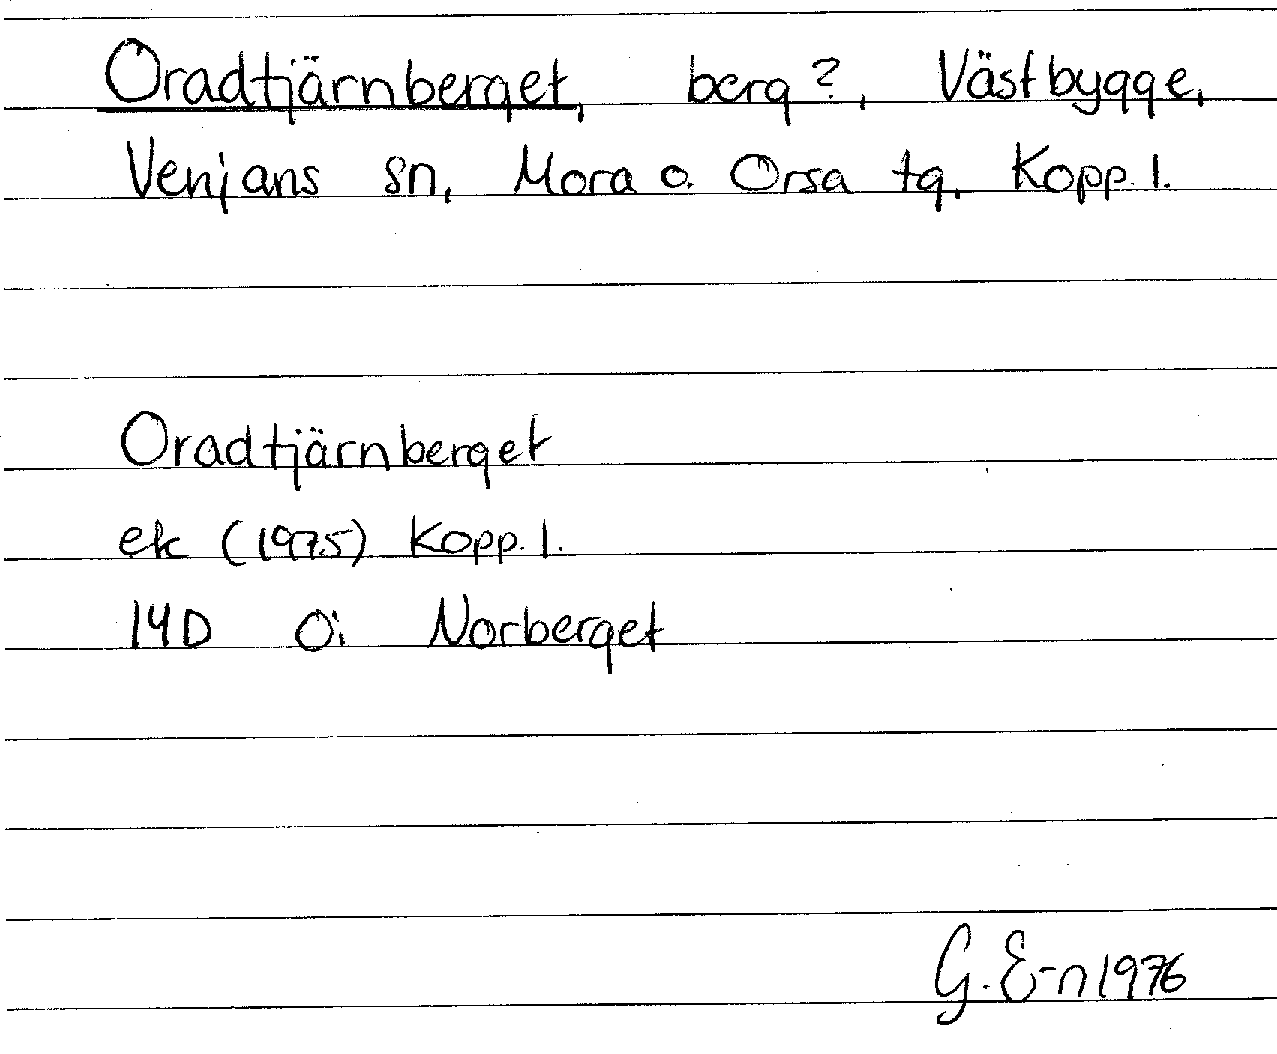 Oradtjärnberget, berg?, Västbygge,
Venjans sn, Mora o. Orsa tg, Kopp. l.
Oradtjärnberget
ek (1975) Kopp. l.
14D 0i Norberget
G. E-n 1976